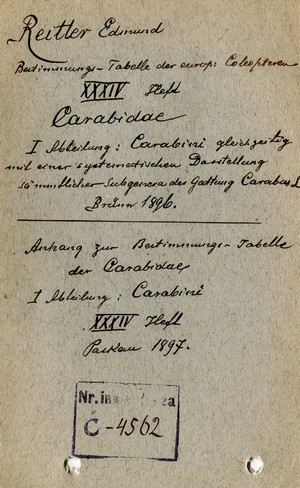 Reitter Edmund
Bestimmungs-Tabelle der europ: Coleopteren
XXXIV Heft
Carabidae
I Abteilung: Carabini gleichzeitig
mit einer systematischen Darstellung
sämmtlicher Subgenera der Gattung Carabus L
Brünn 1896.
Anhang zur Bestimmungs-Tabelle
der Carabidae
I Abteilung: Carabini
XXXIV Heft
Paskau 1897.
Nr. in
C-4562